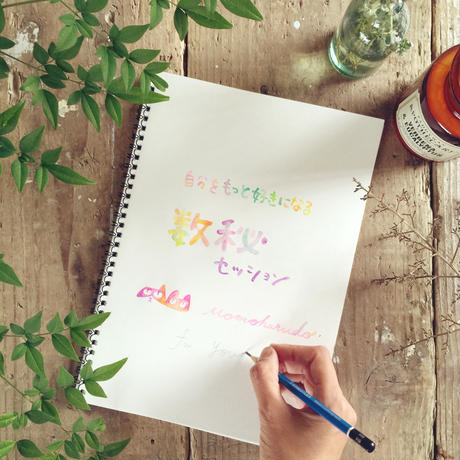 自分をもっと好きになる
数秘
セッション
momoharudo
for You